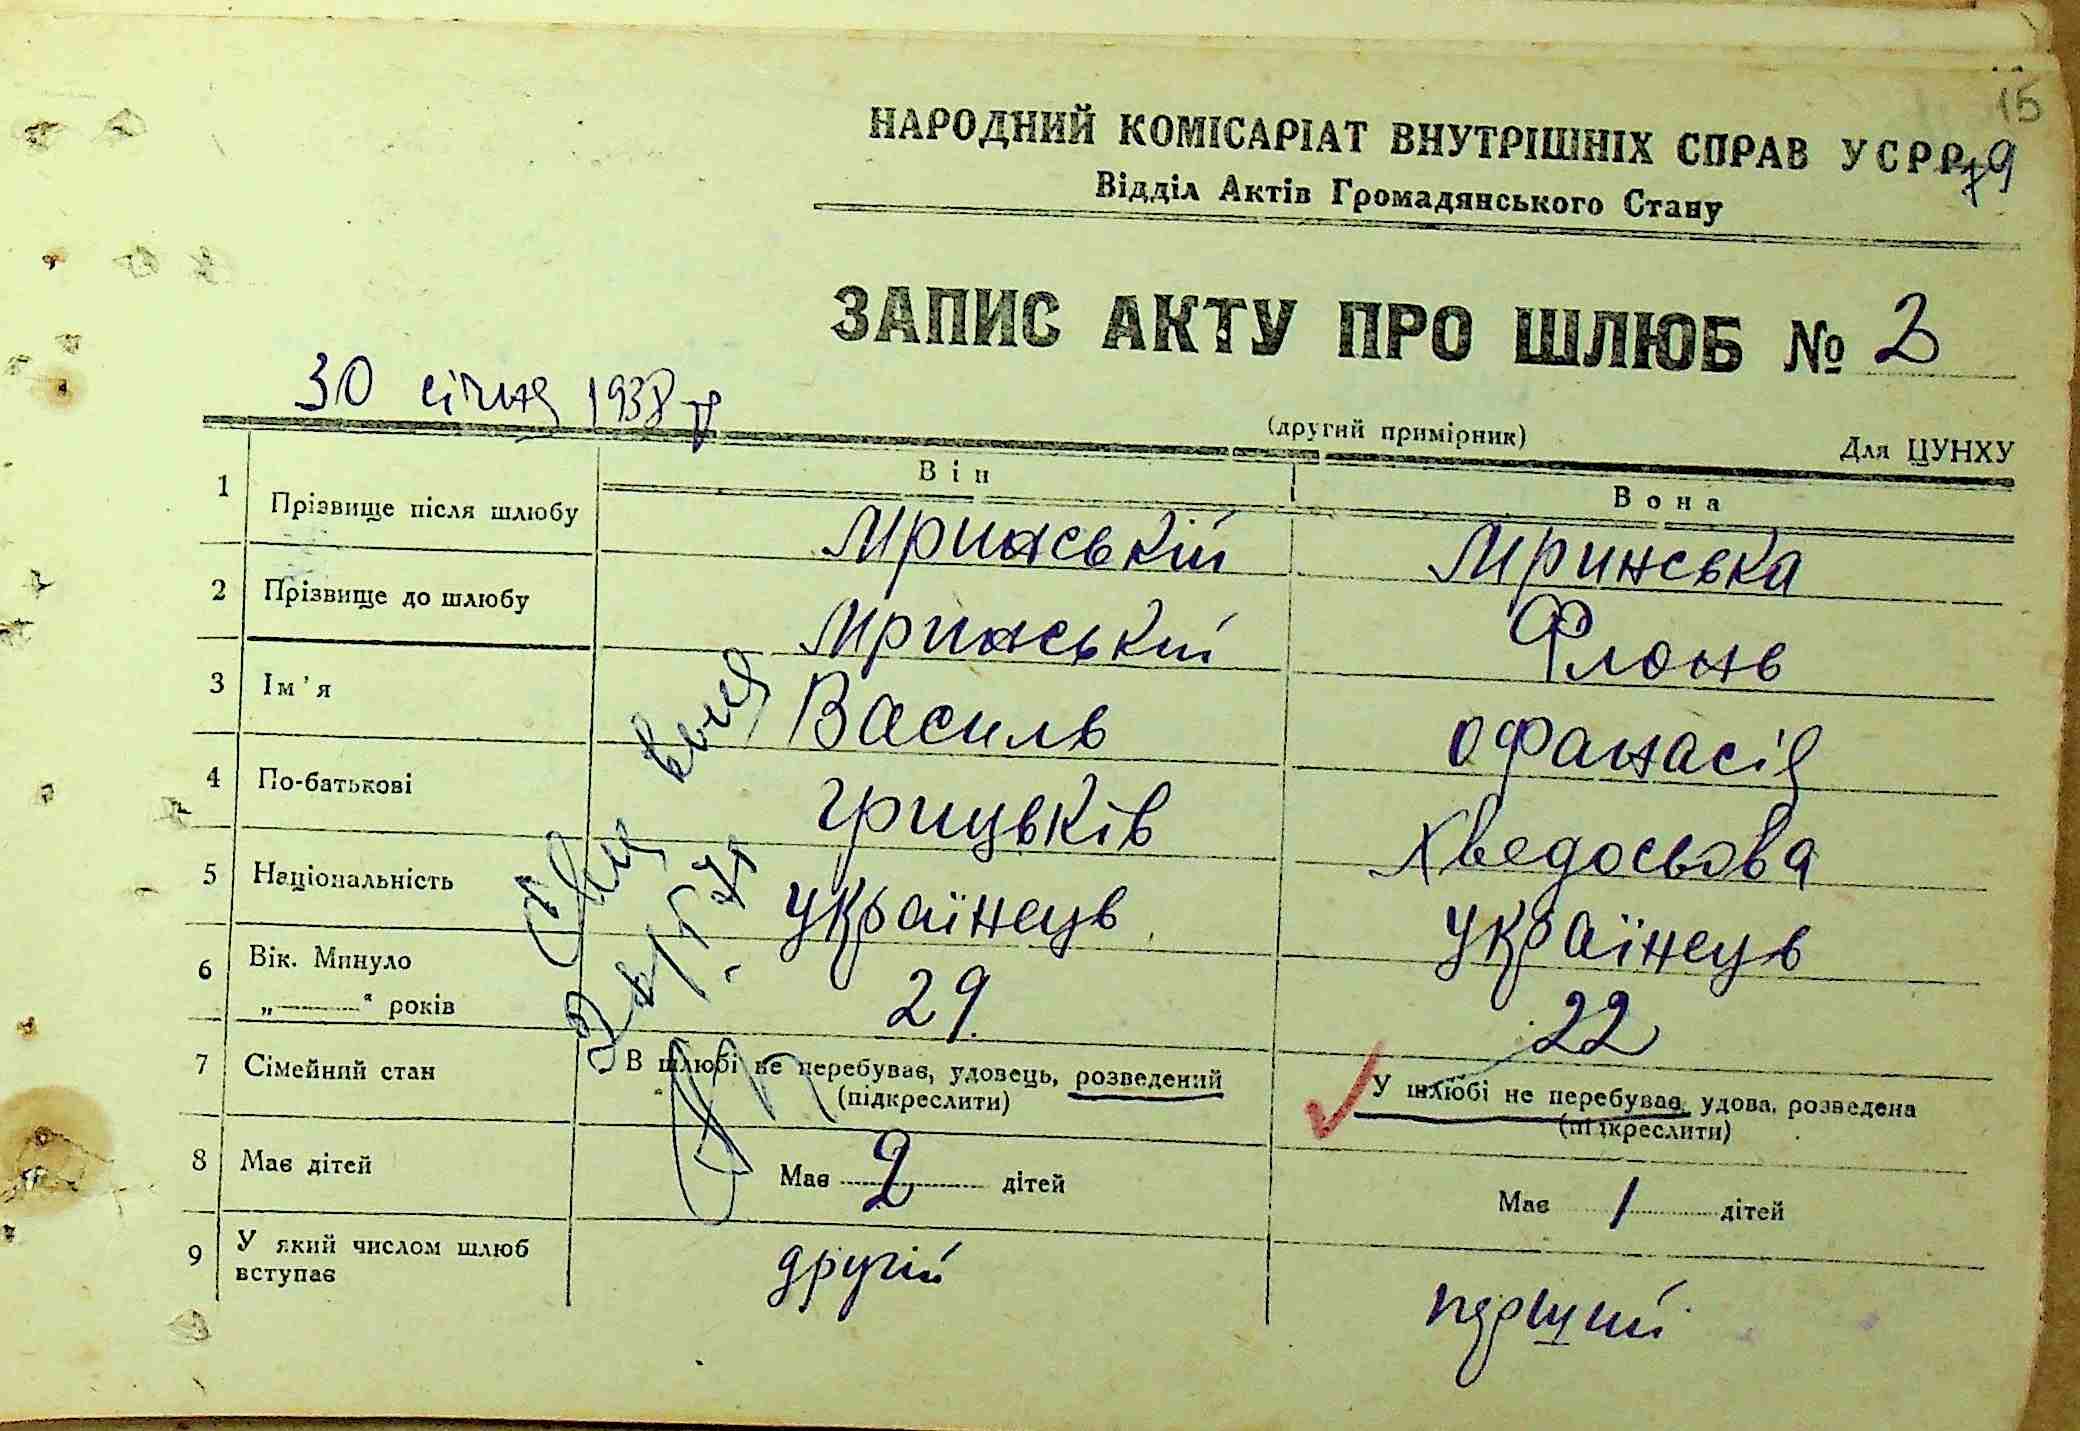 15
НАРОДНИЙ КОМІСАРІАТ ВНУТРІШНІХ СПРАВ УСРР
Відділ Актів Громадянського Стану
ЗАПИС АКТУ ПРО ШЛЮБ № 3
30 січня 1938 р
(другий примірник) Для ЦУНХУ
Він Вона
1 Прізвище після шлюбу Мринській Мринська
2 Прізвище до шлюбу Мринській Флонь
3 Ім'я Василь Офанасія
4 По-батькові Грицьків Хведосьова
5 Національність українець українець
6 Вік. Минуло „ “ років 29. 22
7 Сімейний стан В шлюбі не перебуває, удовець, розведений (підкреслити) У шлюбі не перебуває, удова, розведена (підкреслити)
8 Має дітей Має 2 дітей Має 1 дітей
9 У який числом шлюб вступає другій перший